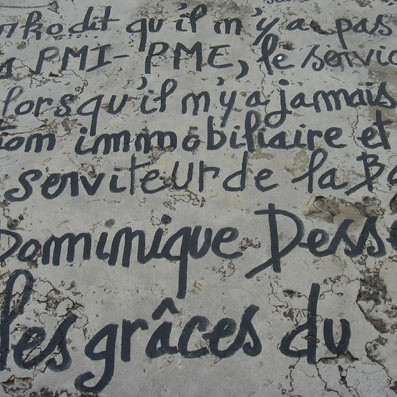 dit qu'il m'y a pas
PMI-PME, le servic
lorsqu'il m'y a jamais
iom immobiliaire et
serviteur de la Ba
Dominique Desse
les grâces du